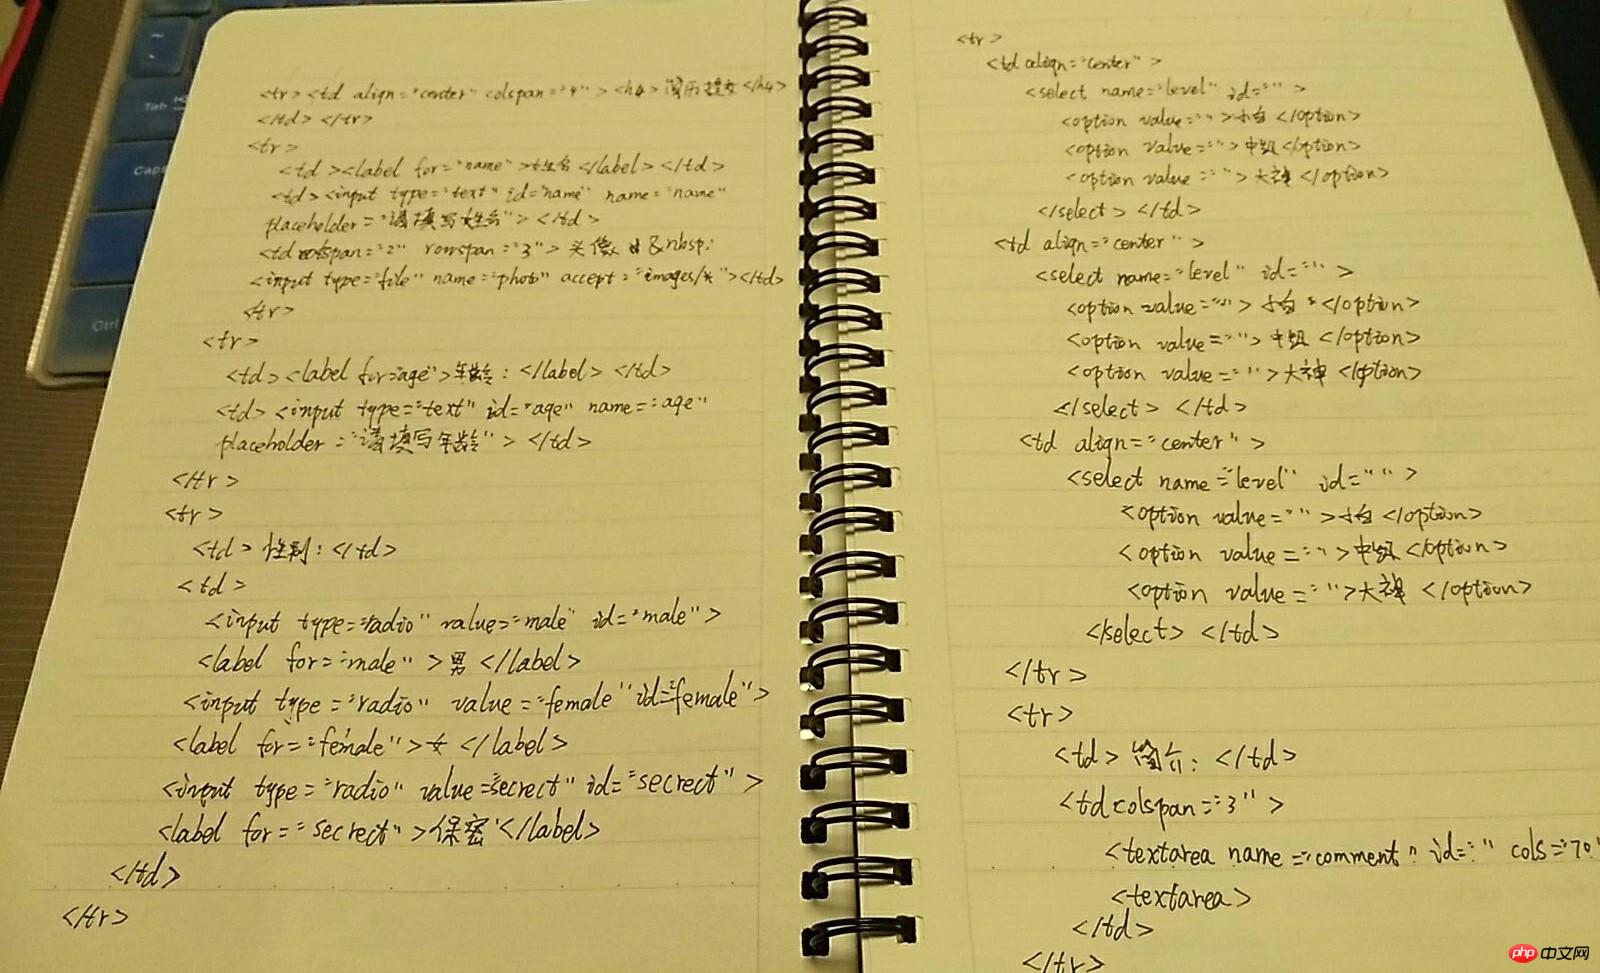 <tr> <td align="center" colspan="4"> <h4>简历提交</h4>
</td> </tr>
<tr>
<td><label for="name">姓名</label></td>
<td><input type="text" id="name" name="name"
placeholder="请填写姓名"> </td>
<td rowspan="3"> 头像 &nbsp;
<input type="file" name="photo" accept="images/*"></td>
<tr>
<tr>
<td><label for="age">年龄:</label></td>
<td><input type="text" id="age" name="age"
placeholder="请填写年龄"> </td>
</tr>
<tr>
<td>性别:</td>
<td>
<input type="radio" value="male" id="male">
<label for="male">男</label>
<input type="radio" value="female" id="female">
<label for="female">女</label>
<input type="radio" value="secrect" id="secrect">
<label for="secrect">保密</label>
</td>
</tr>
<tr>
<td align="center">
<select name="level" id="">
<option value="">小白</option>
<option value="">中级</option>
<option value="">大神</option>
</select> </td>
<td align="center">
<select name="level" id="">
<option value="">小白</option>
<option value="">中级</option>
<option value="">大神</option>
</select> </td>
<td align="center">
<select name="level" id="">
<option value="">小白</option>
<option value="">中级</option>
<option value="">大神</option>
</select> </td>
</tr>
<tr>
<td>简介:</td>
<td colspan="3">
<textarea name="comment" id="" cols="70"
<textarea>
</td>
</tr>
Tab
Caps
Ctrl
php 中文网